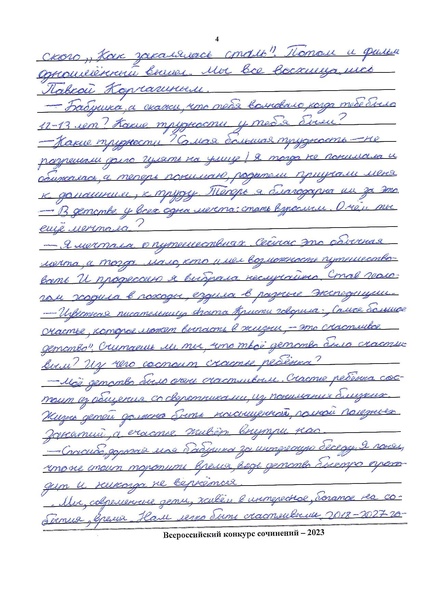 4
ского „Как закалялась сталь". Потом и фильм
одноимённый вышел. Мы все восхищались
Павкой Корчагиным.
– Бабушка, а скажи, что тебя волновало, когда тебе было
12-13 лет? Какие трудности у тебя были?
– Какие трудности? Самая большая трудность – не
разрешали долго гулять на улице! Я тогда не понимала и
обижалась, а теперь понимаю, родители приучали меня
к домашним, к труду. Теперь я благодарна им за это
– В детстве у всех одна мечта: стать взрослым. О чём ты
ещё мечтала?
– Я мечтала о путешествиях. Сейчас это обычная
мечта, а тогда мало, кто имел возможности путешество-
вать. И профессию я выбрала неслучайно. Став геоло-
гом ходила в походы, ездила в разные экспедиции.
– Известная писательница Агата Кристи говорила: „Самое большое
счастье, которое может выпасть в жизни, – это счастливое
детство". Считаешь ли ты, что твоё детство было счастли-
вым? Из чего состоит счастье ребёнка?
– Моё детство было очень счастливым. Счастье ребёнка сос-
тоит из общения со сверстниками, из понимания близких
Жизнь детей должна быть насыщенной, полной полезных
занятий, а счастье живёт внутри нас.
– Спасибо, дорогая моя бабушка за интересную беседу. Я понял,
что не стоит торопить время, ведь детство быстро прохо-
дит и никогда не вернётся.
Мы, современные дети, живём в интересное, богатое на со-
бытия, время. Нам легко быть счастливыми. 2018-2027 го-
Всероссийский конкурс сочинений – 2023